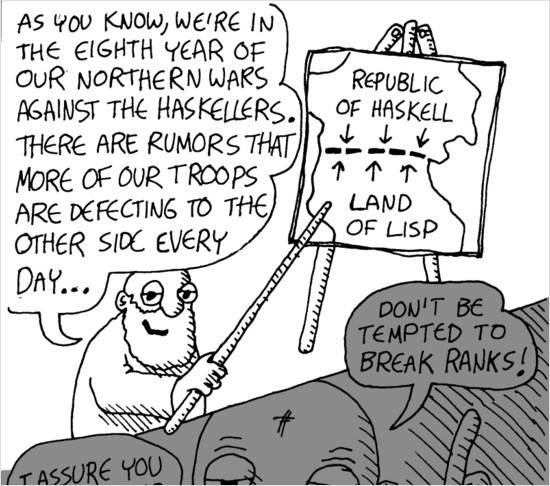 AS YOU KNOW, WE'RE IN
THE EIGHTH YEAR OF
OUR NORTHERN WARS
AGAINST THE HASKELLERS.
THERE ARE RUMORS THAT
MORE OF OUR TROOPS
ARE DEFECTING TO THE
OTHER SIDE EVERY
DAY...
REPUBLIC
OF HASKELL
LAND
OF LISP
DON'T BE
TEMPTED TO
BREAK RANKS!
I ASSURE YOU